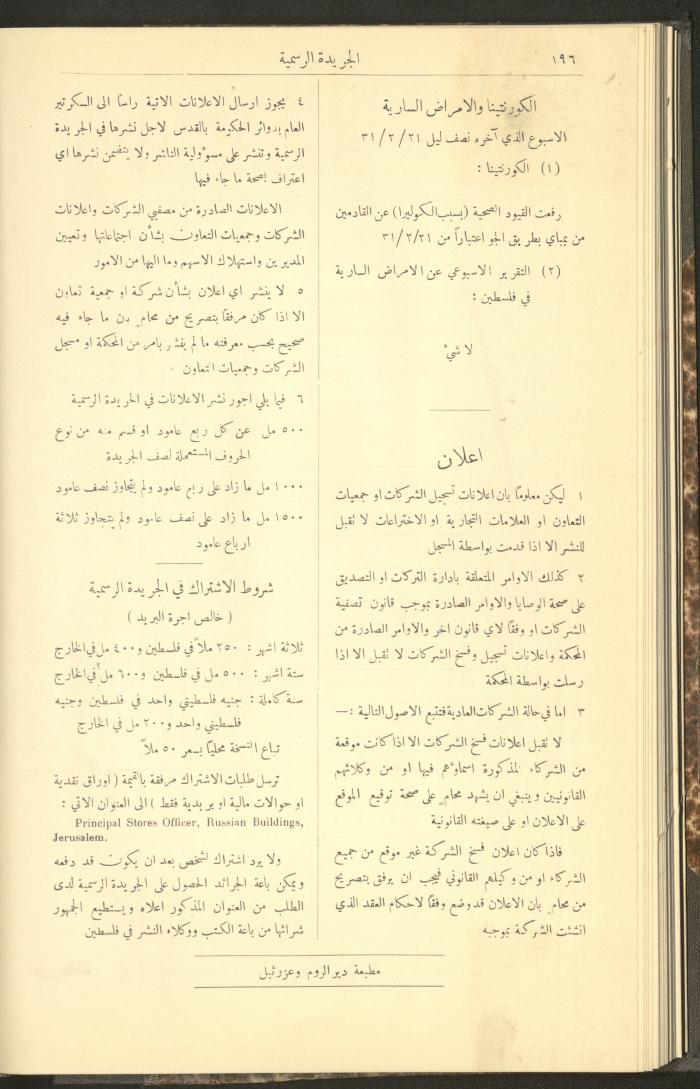 ١٩٦
الجريدة الرسمية
الكورنتينا والامراض السارية
الاسبوع الذي آخره نصف ليل ٢١ / ٢ / ٣١
(١) الكورنتينا :
رفعت القيود الصحية (بسبب الكوليرا) عن القادمين
من بمباي بطريق الجو اعتباراً من ٢١ /٢/ ٣١
(٢) التقرير الاسبوعي عن الامراض السارية
في فلسطين :
لا شيء
اعلان
١ ليكن معلوماً بان اعلانات تسجيل الشركات او جمعيات
التعاون او العلامات التجارية او الاختراعات لا تقبل
للنشر الا اذا قدمت بواسطة المسجل
٢ كذلك الاوامر المتعلقة بادارة التركات او التصديق
على صحة الوصايا والاوامر الصادرة بموجب قانون تصفية
الشركات او وفقاً لاي قانون اخر والاوامر الصادرة من
المحكمة واعلانات تسجيل وفسخ الشركات لا تقبل الا اذا
رسلت بواسطة المحكمة
٣ اما في حالة الشركات العادية فتتبع الاصول التالية :—
لا تقبل اعلانات فسخ الشركات الا اذا كانت موقعة
من الشركاء المذكورة اسماؤهم فيها او من وكلائهم
القانونيين وينبغي ان يشهد محام على صحة توقيع الموقع
على الاعلان او على صيغته القانونية
فاذا كان اعلان فسخ الشركة غير موقع من جميع
الشركاء او من وكيلهم القانوني فيجب ان يرفق بتصريح
من محام بان الاعلان قد وضع وفقاً لاحكام العقد الذي
انشئت الشركة بموجبه
٤ يجوز ارسال الاعلانات الاتية راساً الى السكرتير
العام بدوائر الحكومة بالقدس لاجل نشرها في الجريدة
الرسمية وتنشر على مسؤولية الناشر ولا يتضمن نشرها اي
اعتراف بصحة ما جاء فيها
الاعلانات الصادرة من مصفيي الشركات واعلانات
الشركات وجمعيات التعاون بشأن اجتماعاتها وتعيين
المديرين واستهلاك الاسهم وما اليها من الامور
٥ لا ينشر اي اعلان بشأن شركة او جمعية تعاون
الا اذا كان مرفقاً بتصريح من محام بان ما جاء فيه
صحيح بحسب معرفته ما لم ينشر بامر من المحكمة او مسجل
الشركات وجمعيات التعاون
٦ فيما يلي اجور نشر الاعلانات في الجريدة الرسمية
٥٠٠ مل عن كل ربع عامود او قسم منه من نوع
الحروف المستعملة لصف الجريدة
١٠٠٠ مل ما زاد على ربع عامود ولم يتجاوز نصف عامود
١٥٠٠ مل ما زاد على نصف عامود ولم يتجاوز ثلاثة
ارباع عامود
شروط الاشتراك في الجريدة الرسمية
( خالص اجرة البريد )
ثلاثة اشهر : ٢٥٠ ملاً في فلسطين و٤٠٠ مل في الخارج
ستة اشهر : ٥٠٠ مل في فلسطين و٦٠٠ مل في الخارج
سنة كاملة : جنيه فلسطيني واحد في فلسطين وجنيه
فلسطيني واحد و٢٠٠ مل في الخارج
تباع النسخة محلياً بسعر ٥٠ ملاً
ترسل طلبات الاشتراك مرفقة بالقيمة ( اوراق نقدية
او حوالات مالية او بريدية فقط ) الى العنوان الاتي :
Principal Stores Officer, Russian Buildings,
Jerusalem.
ولا يرد اشتراك لشخص بعد ان يكون قد دفعه
ويمكن باعة الجرائد الحصول على الجريدة الرسمية لدى
الطلب من العنوان المذكور اعلاه ويستطيع الجمهور
شرائها من باعة الكتب ووكلاء النشر في فلسطين
مطبعة دير الروم وعزرئيل